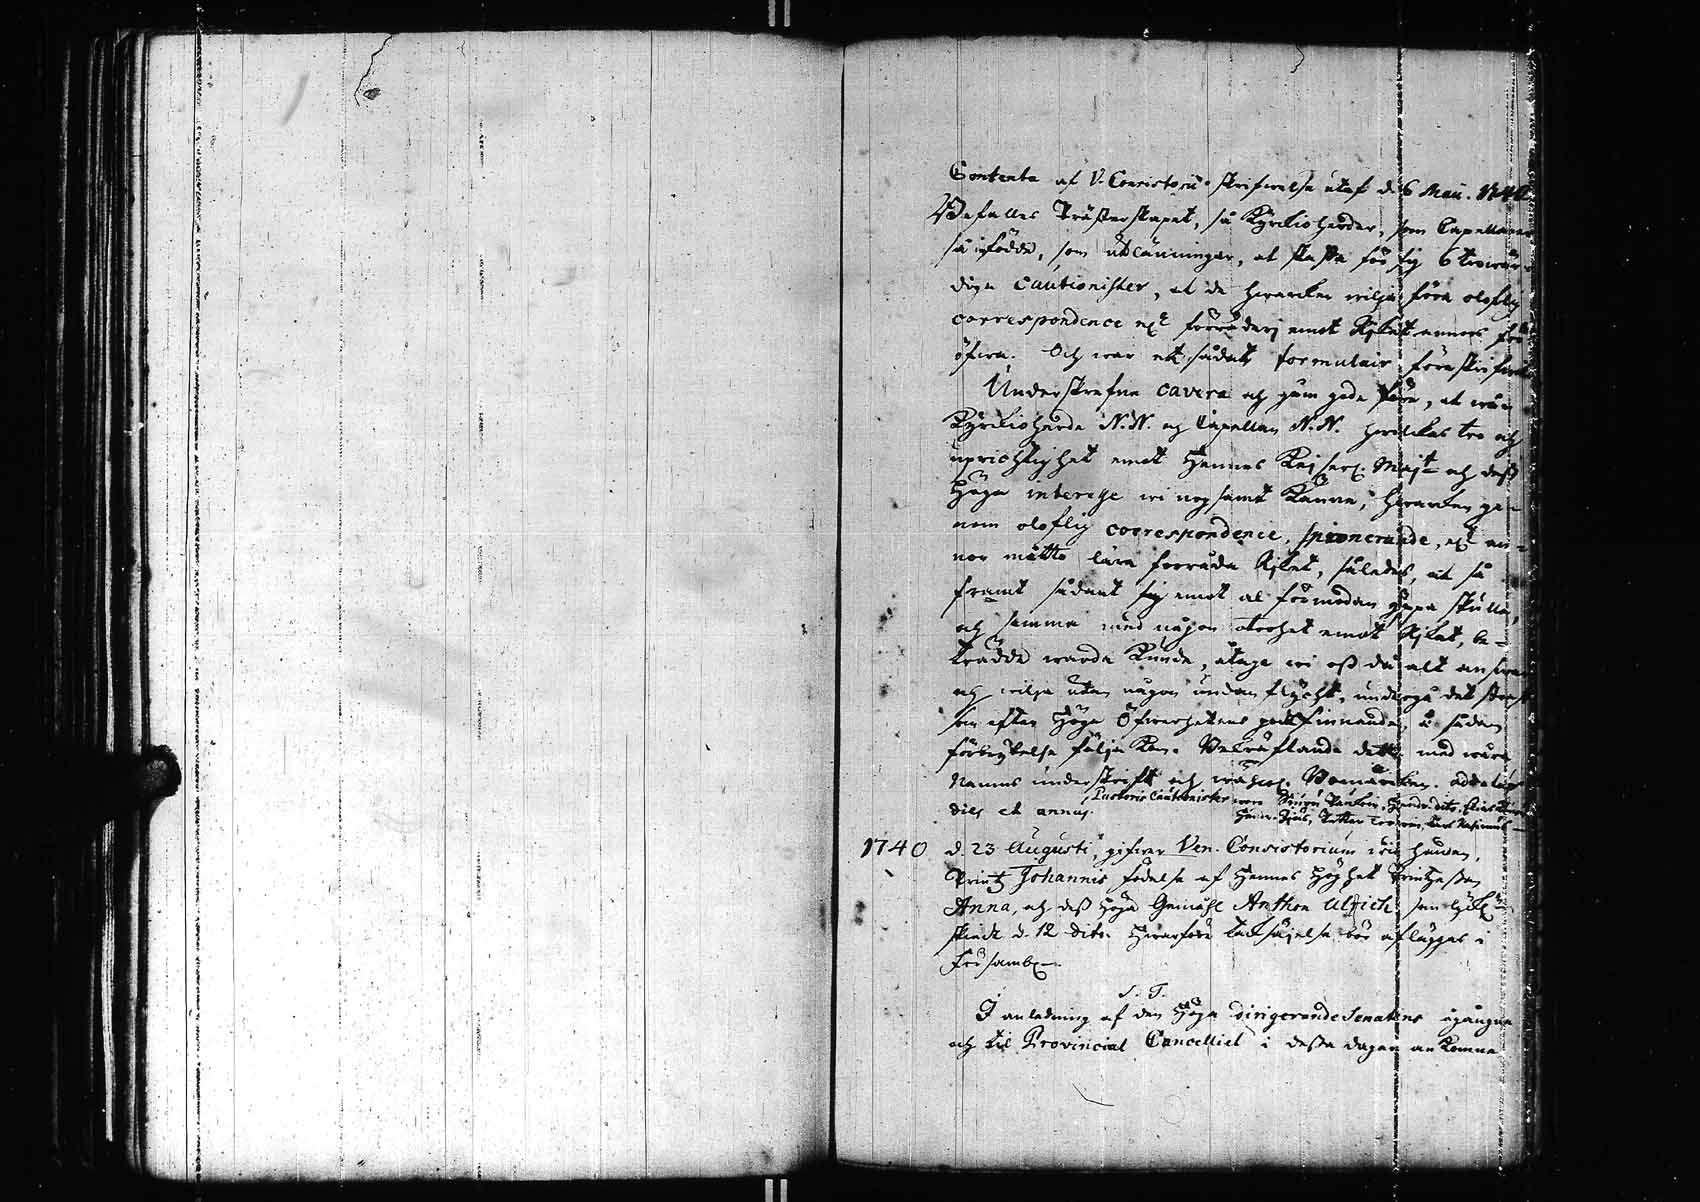 Contenta af V. Consistorii skrifwelse utaf d. 6 Maii. 1740
Befalles Prästerskapet, så Kyrkioherdar, som Capellaner
så infödde, som utlänningar, at skaffa för sig 6 trowär-
diga Cautionister, at de hwarken wilja föra oloflig
correspondence eller förräderj emot Rjket annors för
öfwa. Och war ett sådant formulair föreskrifwit
Underskrefne cavera och gåm goda före, at wår
Kyrkioherde N.N. och Capellan N.N. hwilkas tro och
uprichtighet emot Hennes Kejserl. Majt och dess
Höga interesse wi nogsamt känna, hwarken ge-
nom oloflig correspondence, spionerande, eller an-
nor måtto lära förråda Rjket, således, at så
framt sådant sig emot al förmodan yppa skulle,
och samma med någon otrohet emot Rjket, be-
trädde warda kunde, åtage wi oss då alt answar
och wilja utan någon undanflycht, undergå det straff
som efter Höga Öfwerhetens godtfinnande, å sådan
förbrytelse följa kan. Bekräftande detta med wåra
Namns underskrift och Bomärken.
dies et annus. Pastoris Cautionister woro
1740 d. 23 Augusti, gifwer Ven. Consistorium wid handen,
Printz Johannis födelse af Hennes Höghet Printzessan
Anna, och dess Höga Gemåhl Anthon Ulrich, som
skiedt d. 12 dito. Hwarföre tacksäjelse bör afläggas i
Församl.
S. T.
I anledning af den Höga dirigerande Senatens ågångne
och til Provincial Cancelliet i dessa dagar ankomne